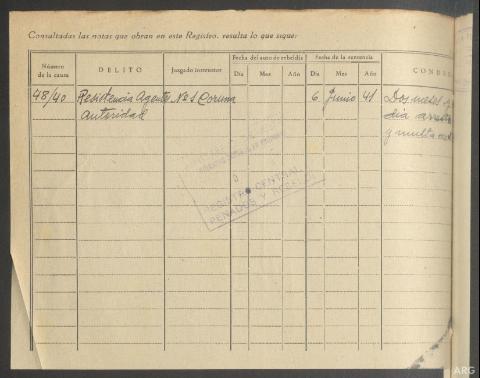 Consultadas las notas que obran en este Registro, resulta lo que sigue:
Número de la causa
DELITO
Juzgado instructor
Fecha del auto de rebeldía
Día Mes Año
Fecha de la sentencia
Día Mes Año
COND
48/40 Resistencia Agente Nº 1 Coruña 6 Junio 41 Dos meses
autoridad día arresto
y multa
REGISTRO CENTRAL
PENADOS Y REBELDES
ARG